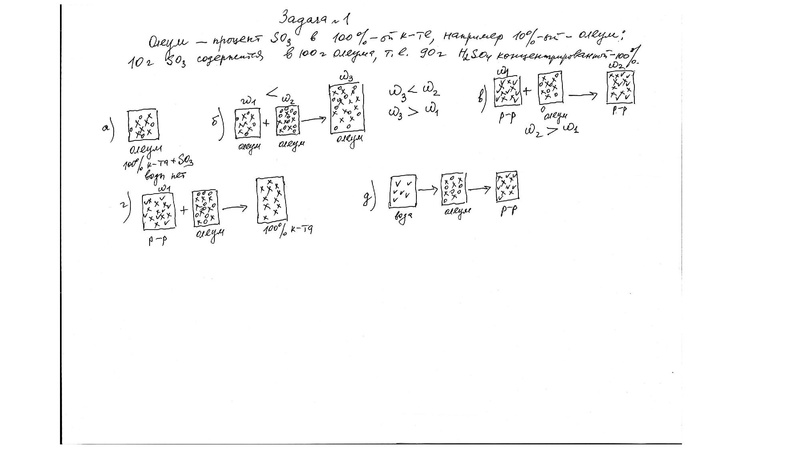 Задача №1
Олеум – процент SO3 в 100%-ой к-те, например 10%-ый – олеум:
10г SO3 содержится в 100г олеума, т.е. 90г H2SO4 концентрированной-100%.
а)
олеум
100% к-та+SO3
воды нет
б)
ω1 < ω2
+
ω3
олеум олеум олеум
ω3 < ω2
ω3 > ω1
в)
ω1
+
ω2
р-р олеум р-р
ω2 > ω1
г)
ω1
+
р-р олеум 100% к-та
д)
вода олеум р-р